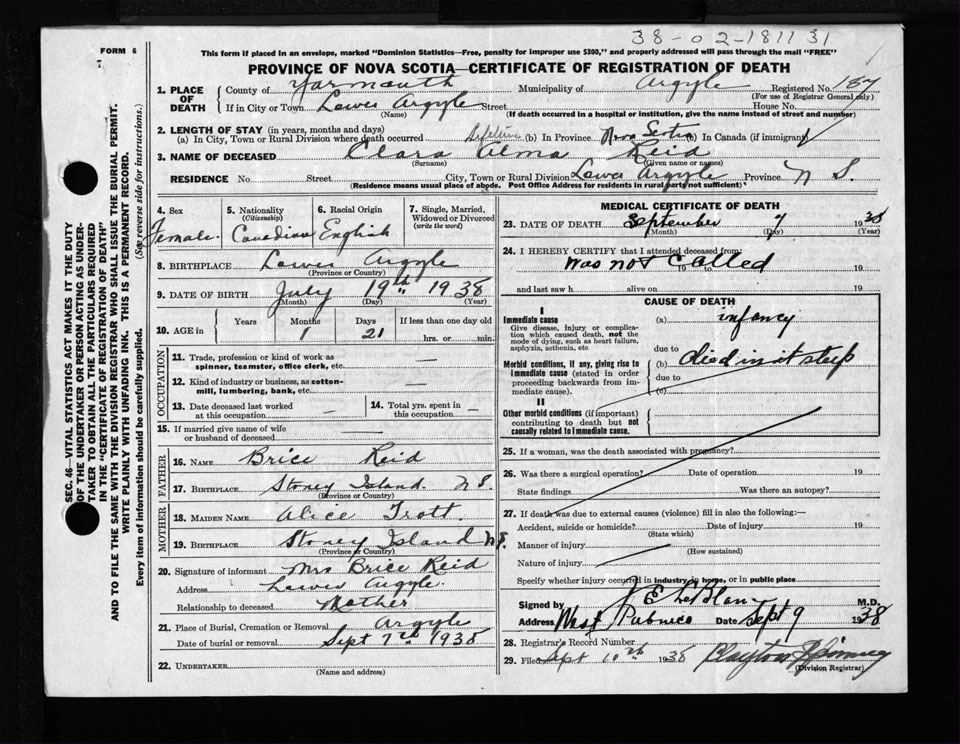 38-02-1811 31
FORM 6
This form if placed in an envelope, marked "Dominion Statistics—Free, penalty for improper use $300," and properly addressed will pass through the mail "FREE"
PROVINCE OF NOVA SCOTIA—CERTIFICATE OF REGISTRATION OF DEATH
1. PLACE OF DEATH
County of Yarmouth Municipality of Argyle Registered No. 157
(For use of Registrar General only)
If in City or Town Lower Argyle Street House No.
(Name) (If death occurred in a hospital or institution, give the name instead of street and number)
2. LENGTH OF STAY (in years, months and days)
(a) In City, Town or Rural Division where death occurred Lifetime (b) In Province Nova Scotia (c) In Canada (if immigrant)
3. NAME OF DECEASED Clara Alma Reid
(Surname) (Given name or names)
RESIDENCE No. Street City, Town or Rural Division Lower Argyle Province N S.
(Residence means usual place of abode. Post Office Address for residents in rural parts not sufficient)
4. Sex
Female.
5. Nationality
(Citizenship)
Canadian
6. Racial Origin
English
7. Single, Married,
Widowed or Divorced
(write the word)
8. BIRTHPLACE Lower Argyle
(Province or Country)
9. DATE OF BIRTH July 19th 1938
(Month) (Day) (Year)
10. AGE in Years Months Days If less than one day old
1 21 hrs. or min.
OCCUPATION
11. Trade, profession or kind of work as
spinner, teamster, office clerk, etc. —
12. Kind of industry or business, as cotton-
mill, lumbering, bank, etc. —
13. Date deceased last worked
at this occupation —
14. Total yrs. spent in
this occupation —
15. If married give name of wife
or husband of deceased —
FATHER
16. NAME Brice Reid
17. BIRTHPLACE Stoney Island. N S.
(Province or Country)
MOTHER
18. MAIDEN NAME Alice Trott.
19. BIRTHPLACE Stoney Island N S.
(Province or Country)
20. Signature of informant Mrs Brice Reid
Address Lower Argyle.
Relationship to deceased Mother
21. Place of Burial, Cremation or Removal Argyle
Date of burial or removal Sept 7th 1938
22. UNDERTAKER
(Name and address)
MEDICAL CERTIFICATE OF DEATH
23. DATE OF DEATH September 7 1938
(Month) (Day) (Year)
24. I HEREBY CERTIFY that I attended deceased from:
Was not called
19 to 19
and last saw h alive on 19
CAUSE OF DEATH
I
Immediate cause
Give disease, injury or complica-
tion which caused death, not the
mode of dying, such as heart failure,
asphyxia, asthenia, etc
(a) infancy
due to
Morbid conditions, if any, giving rise to
immediate cause (stated in order
proceeding backwards from im-
mediate cause).
(b) died in it sleep
due to
(c)
II
Other morbid conditions (if important)
contributing to death but not
causally related to immediate cause.
25. If a woman, was the death associated with pregnancy?
26. Was there a surgical operation? Date of operation 19
State findings Was there an autopsy?
27. If death was due to external causes (violence) fill in also the following:—
Accident, suicide or homicide? Date of injury 19
(State which)
Manner of injury
(How sustained)
Nature of injury
Specify whether injury occurred in industry, in home, or in public place
Signed by J E LeBlanc M.D.
Address West Pubnico Date Sept 9 1938
28. Registrar's Record Number
29. Filed Sept 10th 1938 Clayton
(Division Registrar)
SEC. 46—VITAL STATISTICS ACT MAKES IT THE DUTY
OF THE UNDERTAKER OR PERSON ACTING AS UNDER-
TAKER TO OBTAIN ALL THE PARTICULARS REQUIRED
IN THE "CERTIFICATE OF REGISTRATION OF DEATH"
AND TO FILE THE SAME WITH THE DIVISION REGISTRAR WHO SHALL ISSUE THE BURIAL PERMIT.
WRITE PLAINLY WITH UNFADING INK. THIS IS A PERMANENT RECORD.
Every item of information should be carefully supplied. (See reverse side for instructions.)